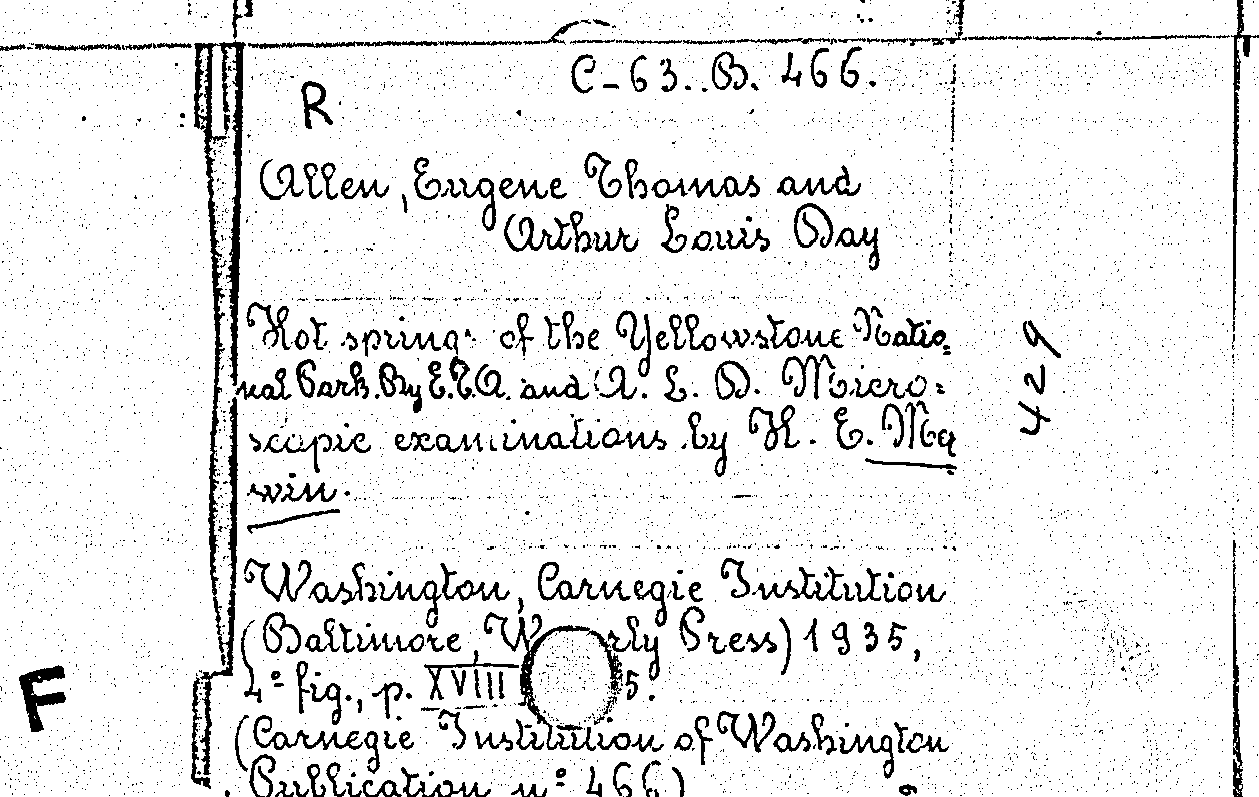 C-63..B. 466.
R
Allen, Eugene Thomas and
Arthur Louis Day
Hot springs of the Yellowstone Natio=
nal Park. By E.T.A. and A. L. D. Micro=
scopic examinations by H. E. Mer=
win.
429
Washington, Carnegie Institution
(Baltimore, Press) 1935,
4° fig., p. XVIII
F
(Carnegie Institution of Washington
Publication n° 466)